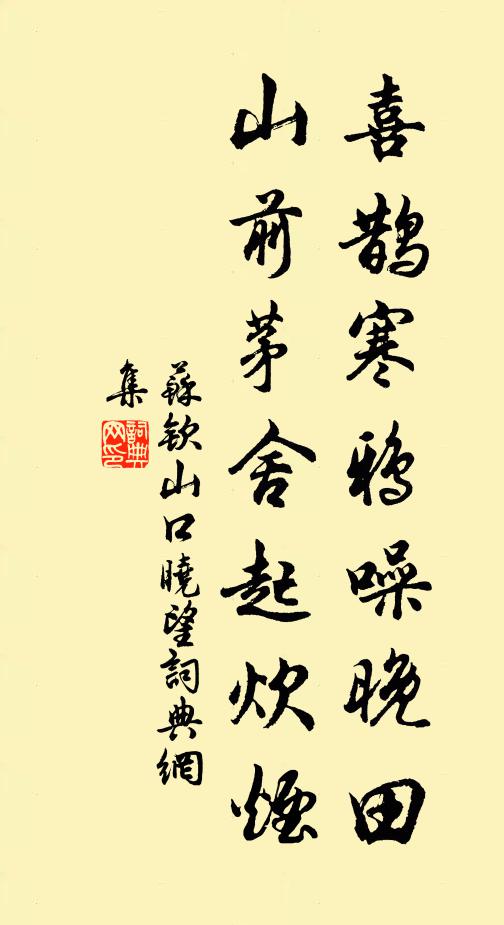 喜鵲寒鴉噪晚田
山前茅舍起炊煙
蘇欽山口曉望詞典網
集
詞典
网印